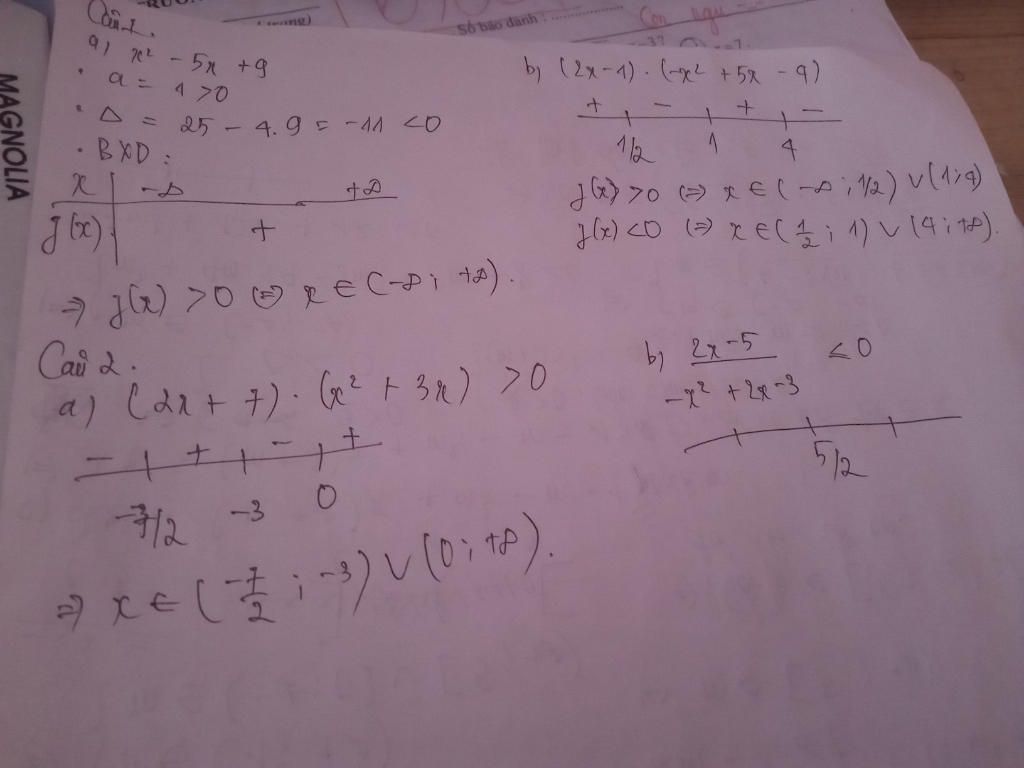 Số báo danh :
MAGNOLIA
Câu 1.
a) x² - 5x + 9
• a = 1 > 0
• Δ = 25 - 4.9 = -11 < 0
• BXD :
x | -∞ +∞
f(x) | +
=> f(x) > 0 <=> x ∈ (-∞ ; +∞).
b) (2x-1) . (-x² + 5x - 4)
+ - + -
1/2 1 4
f(x) > 0 <=> x ∈ (-∞ ; 1/2) ∪ (1 ; 4)
f(x) < 0 <=> x ∈ (1/2 ; 1) ∪ (4 ; +∞).
Câu 2.
a) (2x + 7) . (x² + 3x) > 0
- + - +
-7/2 -3 0
=> x ∈ (-7/2 ; -3) ∪ (0 ; +∞).
b) (2x-5)/(-x² + 2x - 3) ≤ 0
5/2